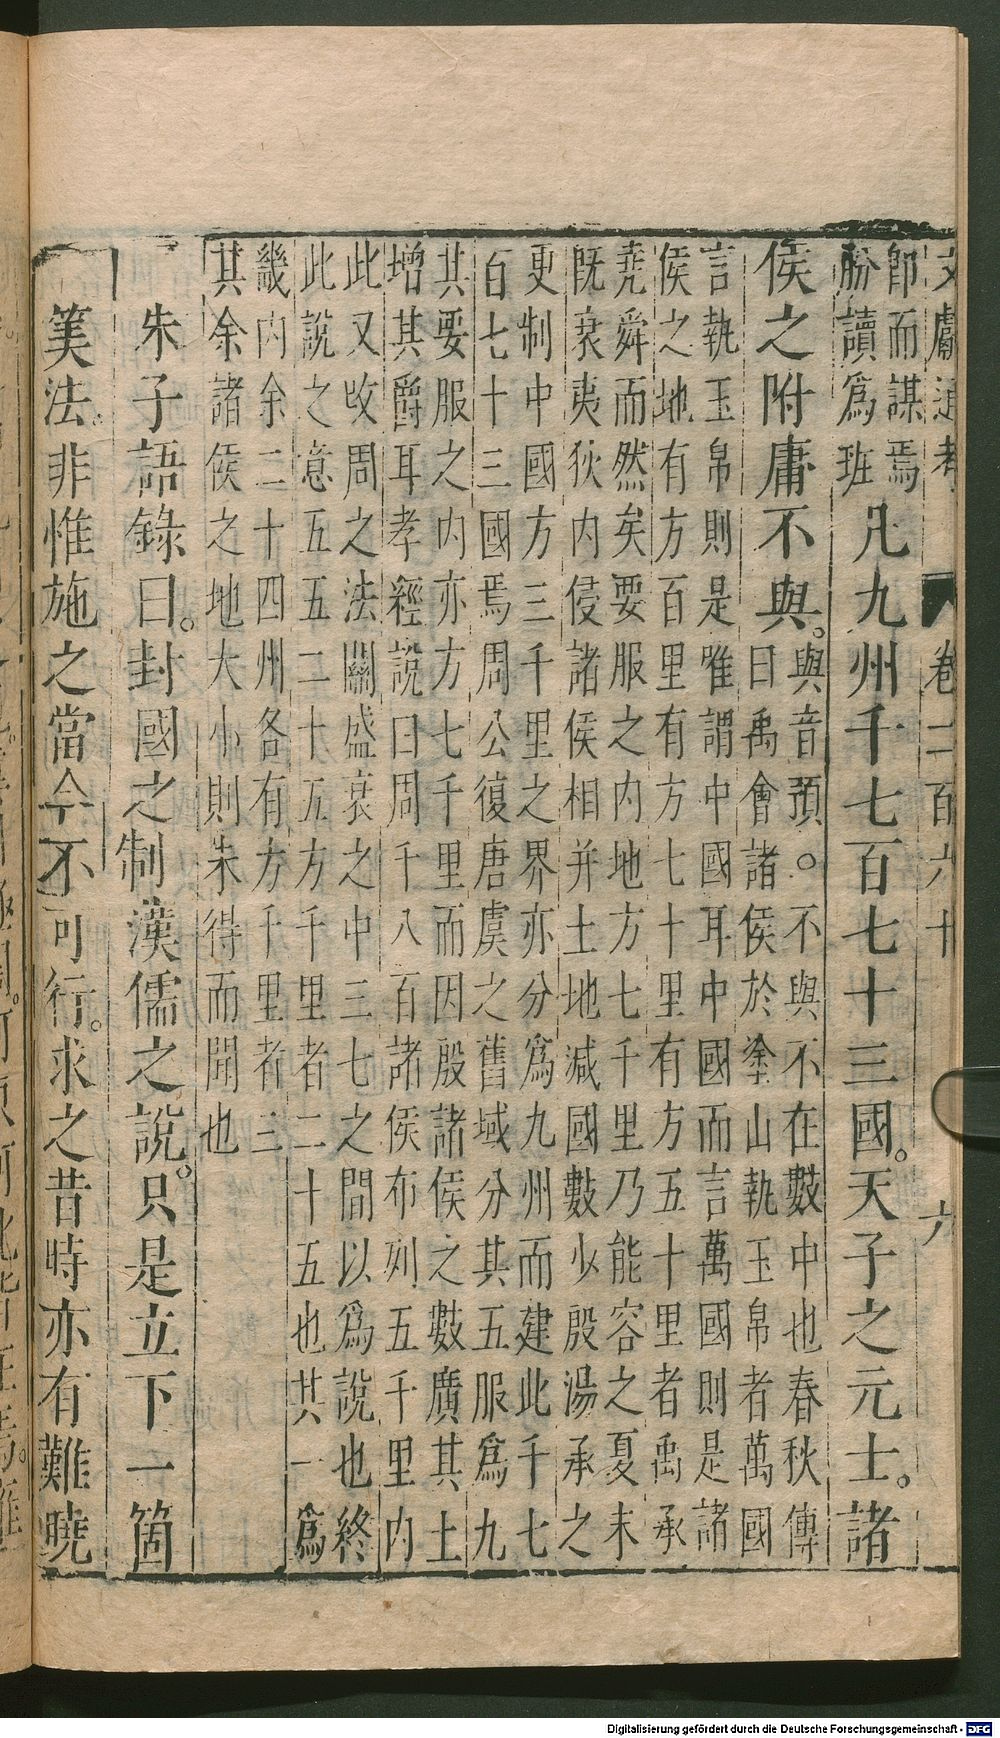 文獻通考 卷二百六十 六
即而謀焉
朌讀爲班
凡九州千七百七十三國。天子之元士。諸
侯之附庸不與。
與音預。○不與不在數中也春秋傳
曰禹會諸侯於塗山執玉帛者萬國
言執玉帛則是唯謂中國耳中國而言萬國則是諸
侯之地有方百里有方七十里有方五十里者禹承
堯舜而然矣要服之內地方七千里乃能容之夏末
旣衰夷狄內侵諸侯相并土地減國數少殷湯承之
更制中國方三千里之界亦分爲九州而建此千七
百七十三國焉周公復唐虞之舊域分其五服爲九
其要服之內亦方七千里而因殷諸侯之數廣其土
增其爵耳孝經說曰周千八百諸侯布列五千里內
此又改周之法關盛衰之中三七之間以爲說也終
此說之意五五二十五方千里者二十五也其一爲
畿內余二十四州各有方千里者三
其余諸侯之地大小則未得而聞也
朱子語錄曰。封國之制漢儒之說。只是立下一箇
筭法。非惟施之當今不可行。求之昔時亦有難曉
Digitalisierung gefördert durch die Deutsche Forschungsgemeinschaft - DFG